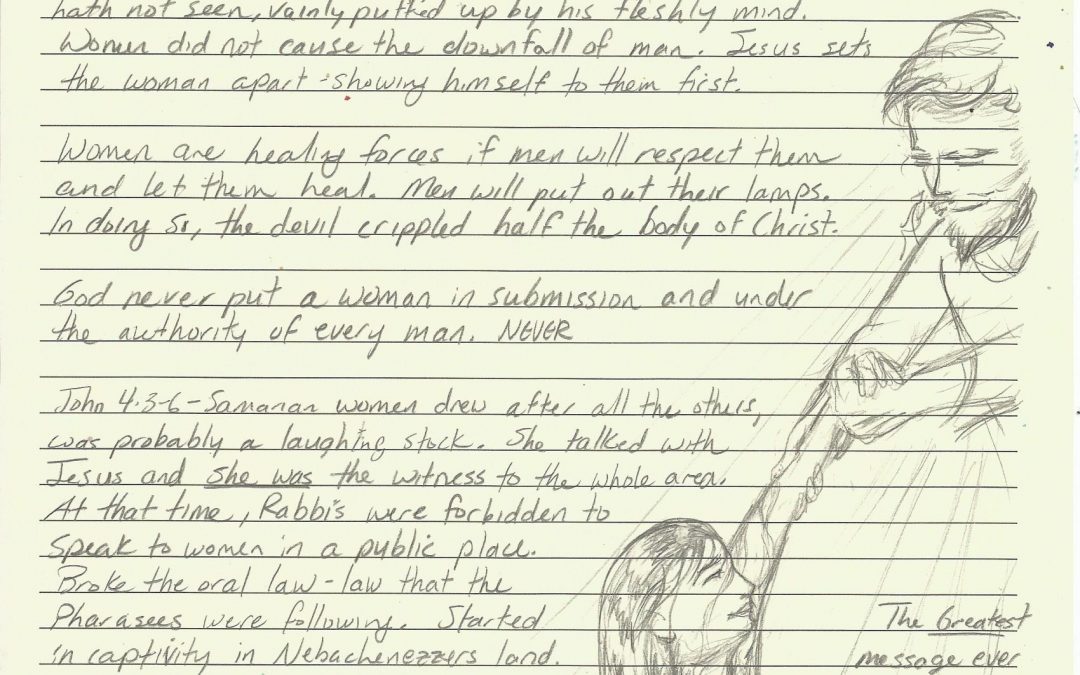 hath not seen, vainly puffed up by his fleshly mind.
Women did not cause the downfall of man. Jesus sets
the woman apart - showing himself to them first.
Women are healing forces if men will respect them
and let them heal. Men will put out their lamps.
In doing so, the devil crippled half the body of Christ.
God never put a woman in submission and under
the authority of every man. NEVER
John 4:3-6 - Samarian women drew after all the others,
was probably a laughing stock. She talked with
Jesus and she was the witness to the whole area.
At that time, Rabbi's were forbidden to
speak to women in a public place.
Broke the oral law - law that the
Pharasees were following. Started
in captivity in Nebachenezzers land.
The Greatest
message ever